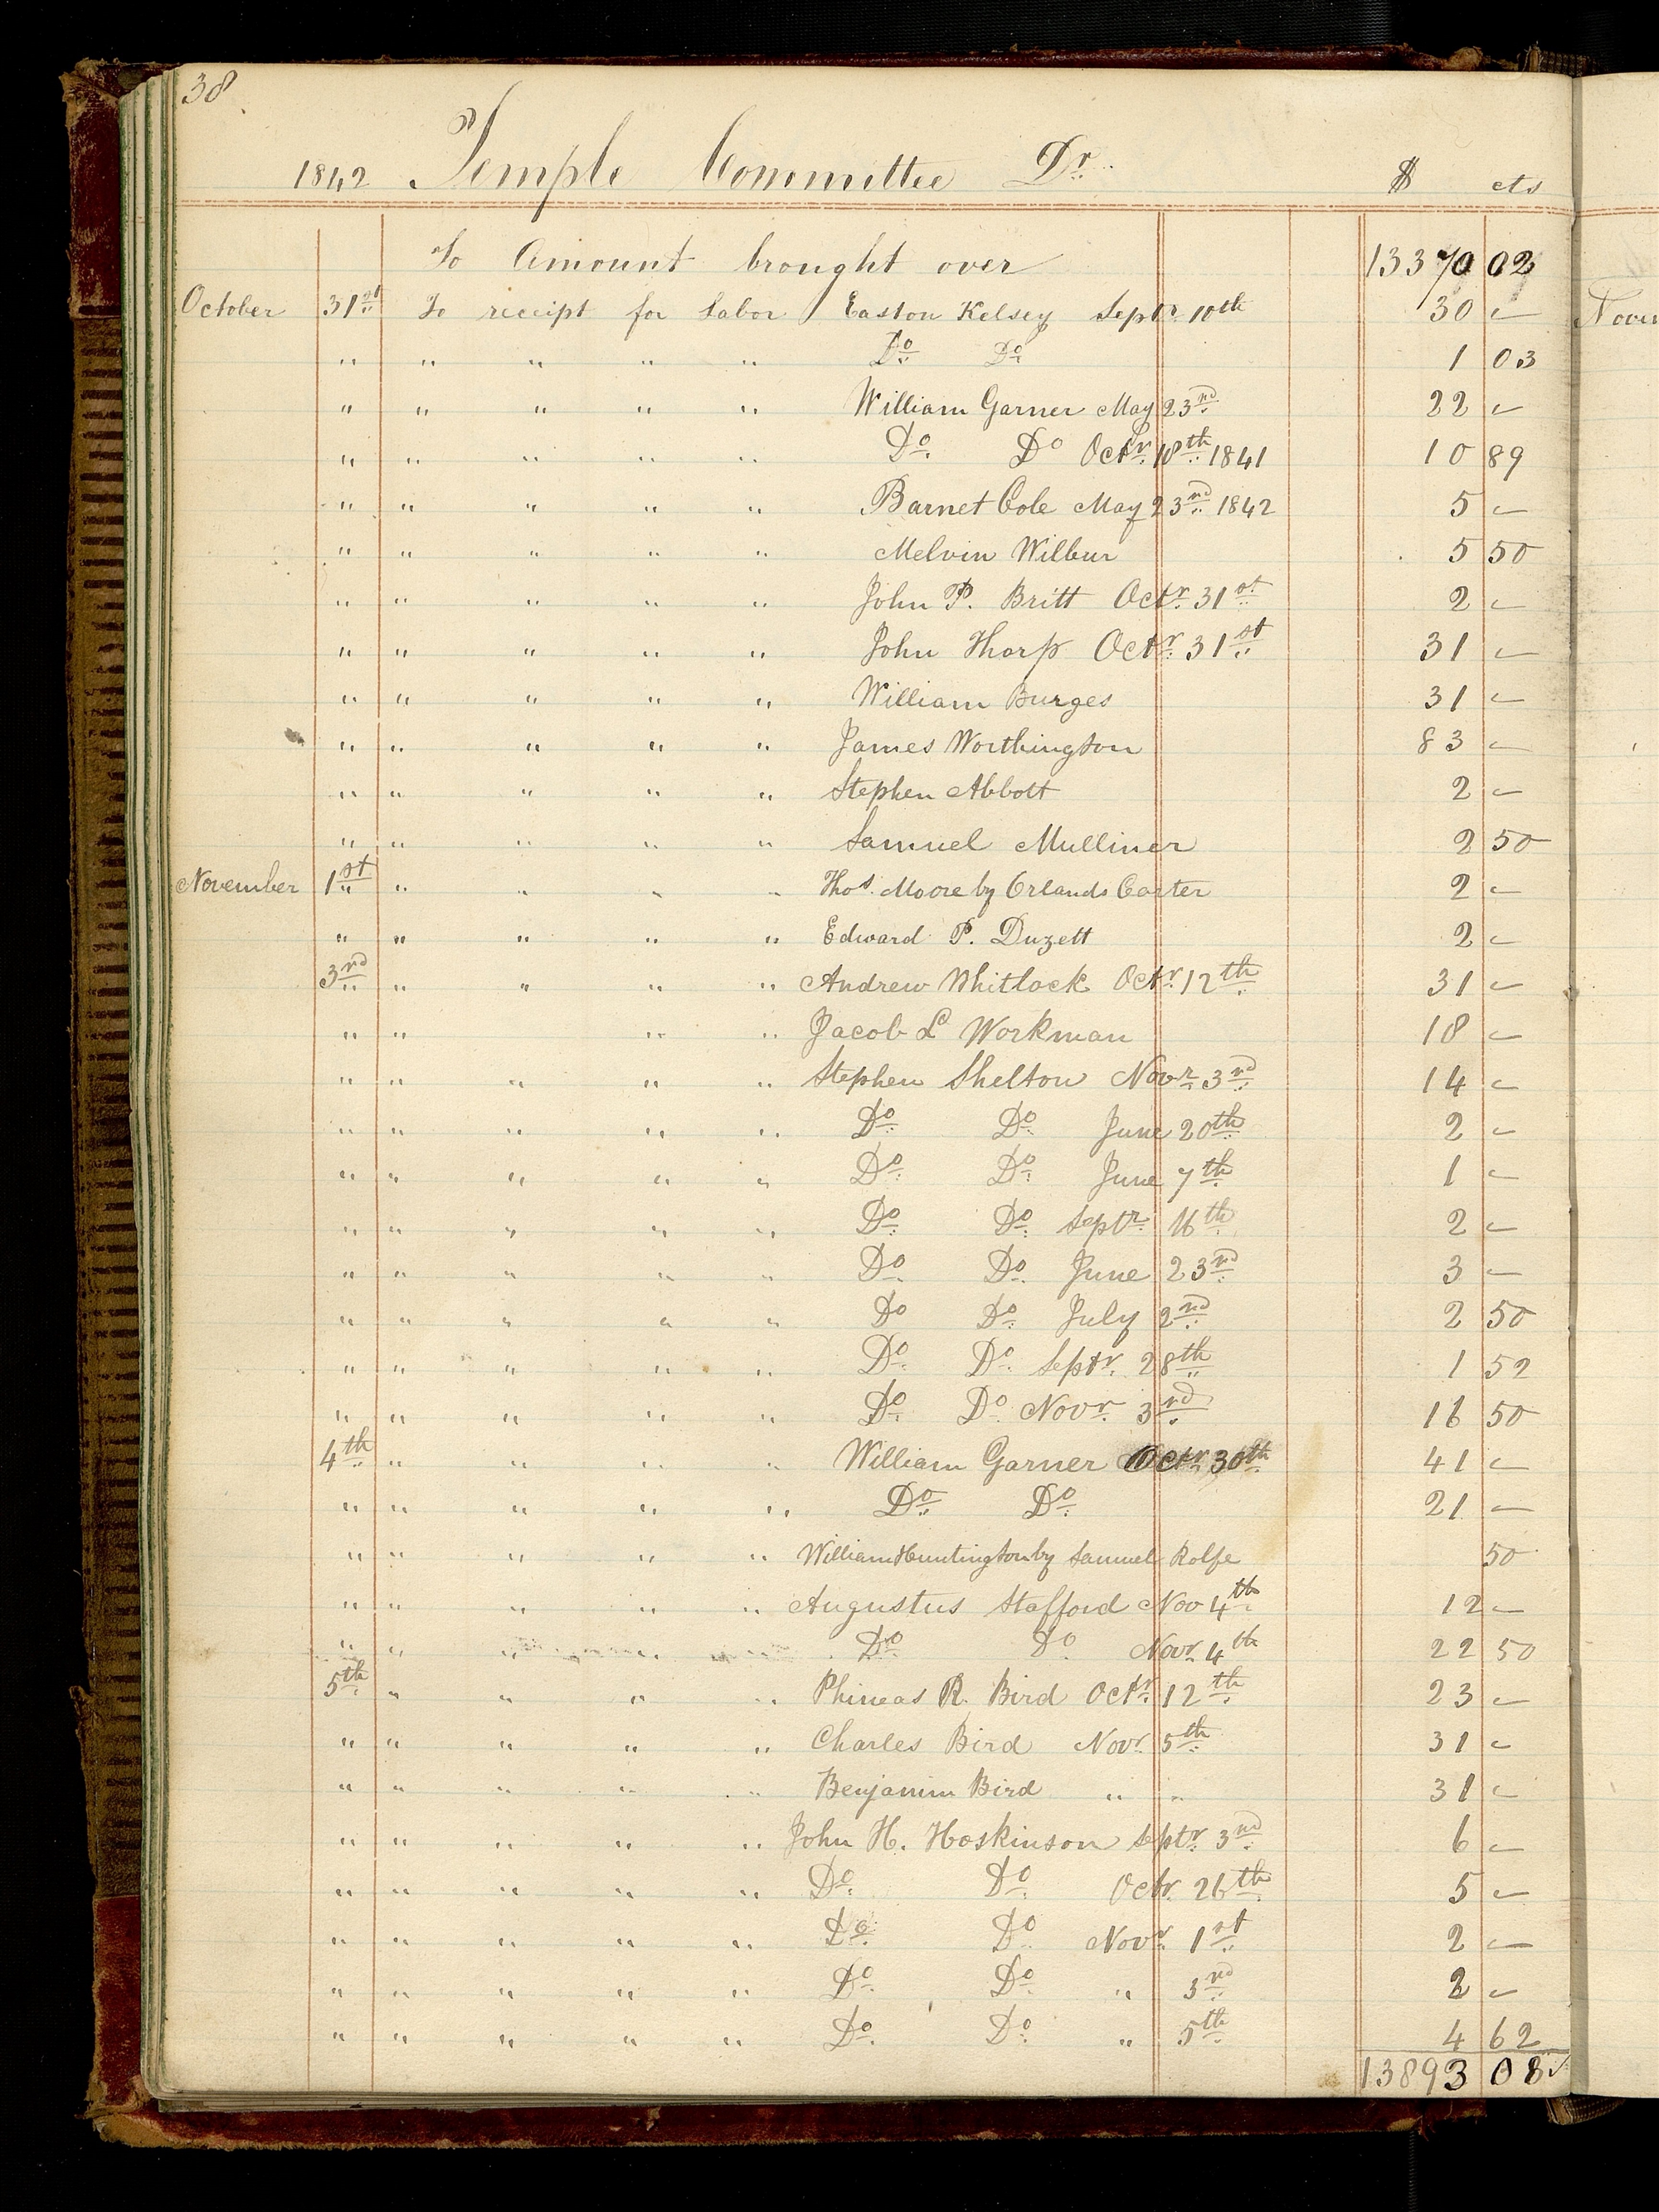 38
1842 Temple Committee Dr. $ cts
To Amount brought over 13370 02
October 31st To receipt for Labor Easton Kelsey Septr 10th 30 –
" " " " " Do Do 1 03
" " " " " William Garner May 23rd 22 –
" " " " " Do Do Octr 18th 1841 10 89
" " " " " Barnet Cole May 23rd 1842 5 –
" " " " " Melvin Wilbur 5 50
" " " " " John P. Britt Octr 31st 2 –
" " " " " John Thorp Octr 31st 31 –
" " " " " William Burges 31 –
" " " " " James Worthington 83 –
" " " " " Stephen Abbott 2 –
" " " " " Samuel Mulliner 2 50
November 1st " " " " Thos. Moore by Orlando Carter 2 –
" " " " " Edward P. Duzett 2 –
3rd " " " " Andrew Whitlock Octr 12th 31 –
" " " " Jacob L Workman 18 –
" " " " " Stephen Shelton Novr 3rd 14 –
" " " " " Do Do June 20th 2 –
" " " " " Do Do June 7th 1 –
" " " " " Do Do Septr 16th 2 –
" " " " " Do Do June 23rd 3 –
" " " " " Do Do July 2nd 2 50
" " " " " Do Do Septr 28th 1 52
" " " " " Do Do Novr 3rd 16 50
4th " " " " William Garner Octr 30th 41 –
" " " " " Do Do 21 –
" " " " " William Huntington by Samuel Rolfe 50
" " " " " Augustus Stafford Nov 4th 12 –
" " " " " Do Do Novr 4th 22 50
5th " " " " Phineas R. Bird Octr 12th 23 –
" " " " " Charles Bird Novr 5th 31 –
" " " " " Benjamin Bird " " 31 –
" " " " " John H. Hoskinson Septr 3rd 6 –
" " " " " Do Do Octr 26th 5 –
" " " " " Do Do Novr 1st 2 –
" " " " " Do Do " 3rd 2 –
" " " " " Do Do " 5th 4 62
13893 08